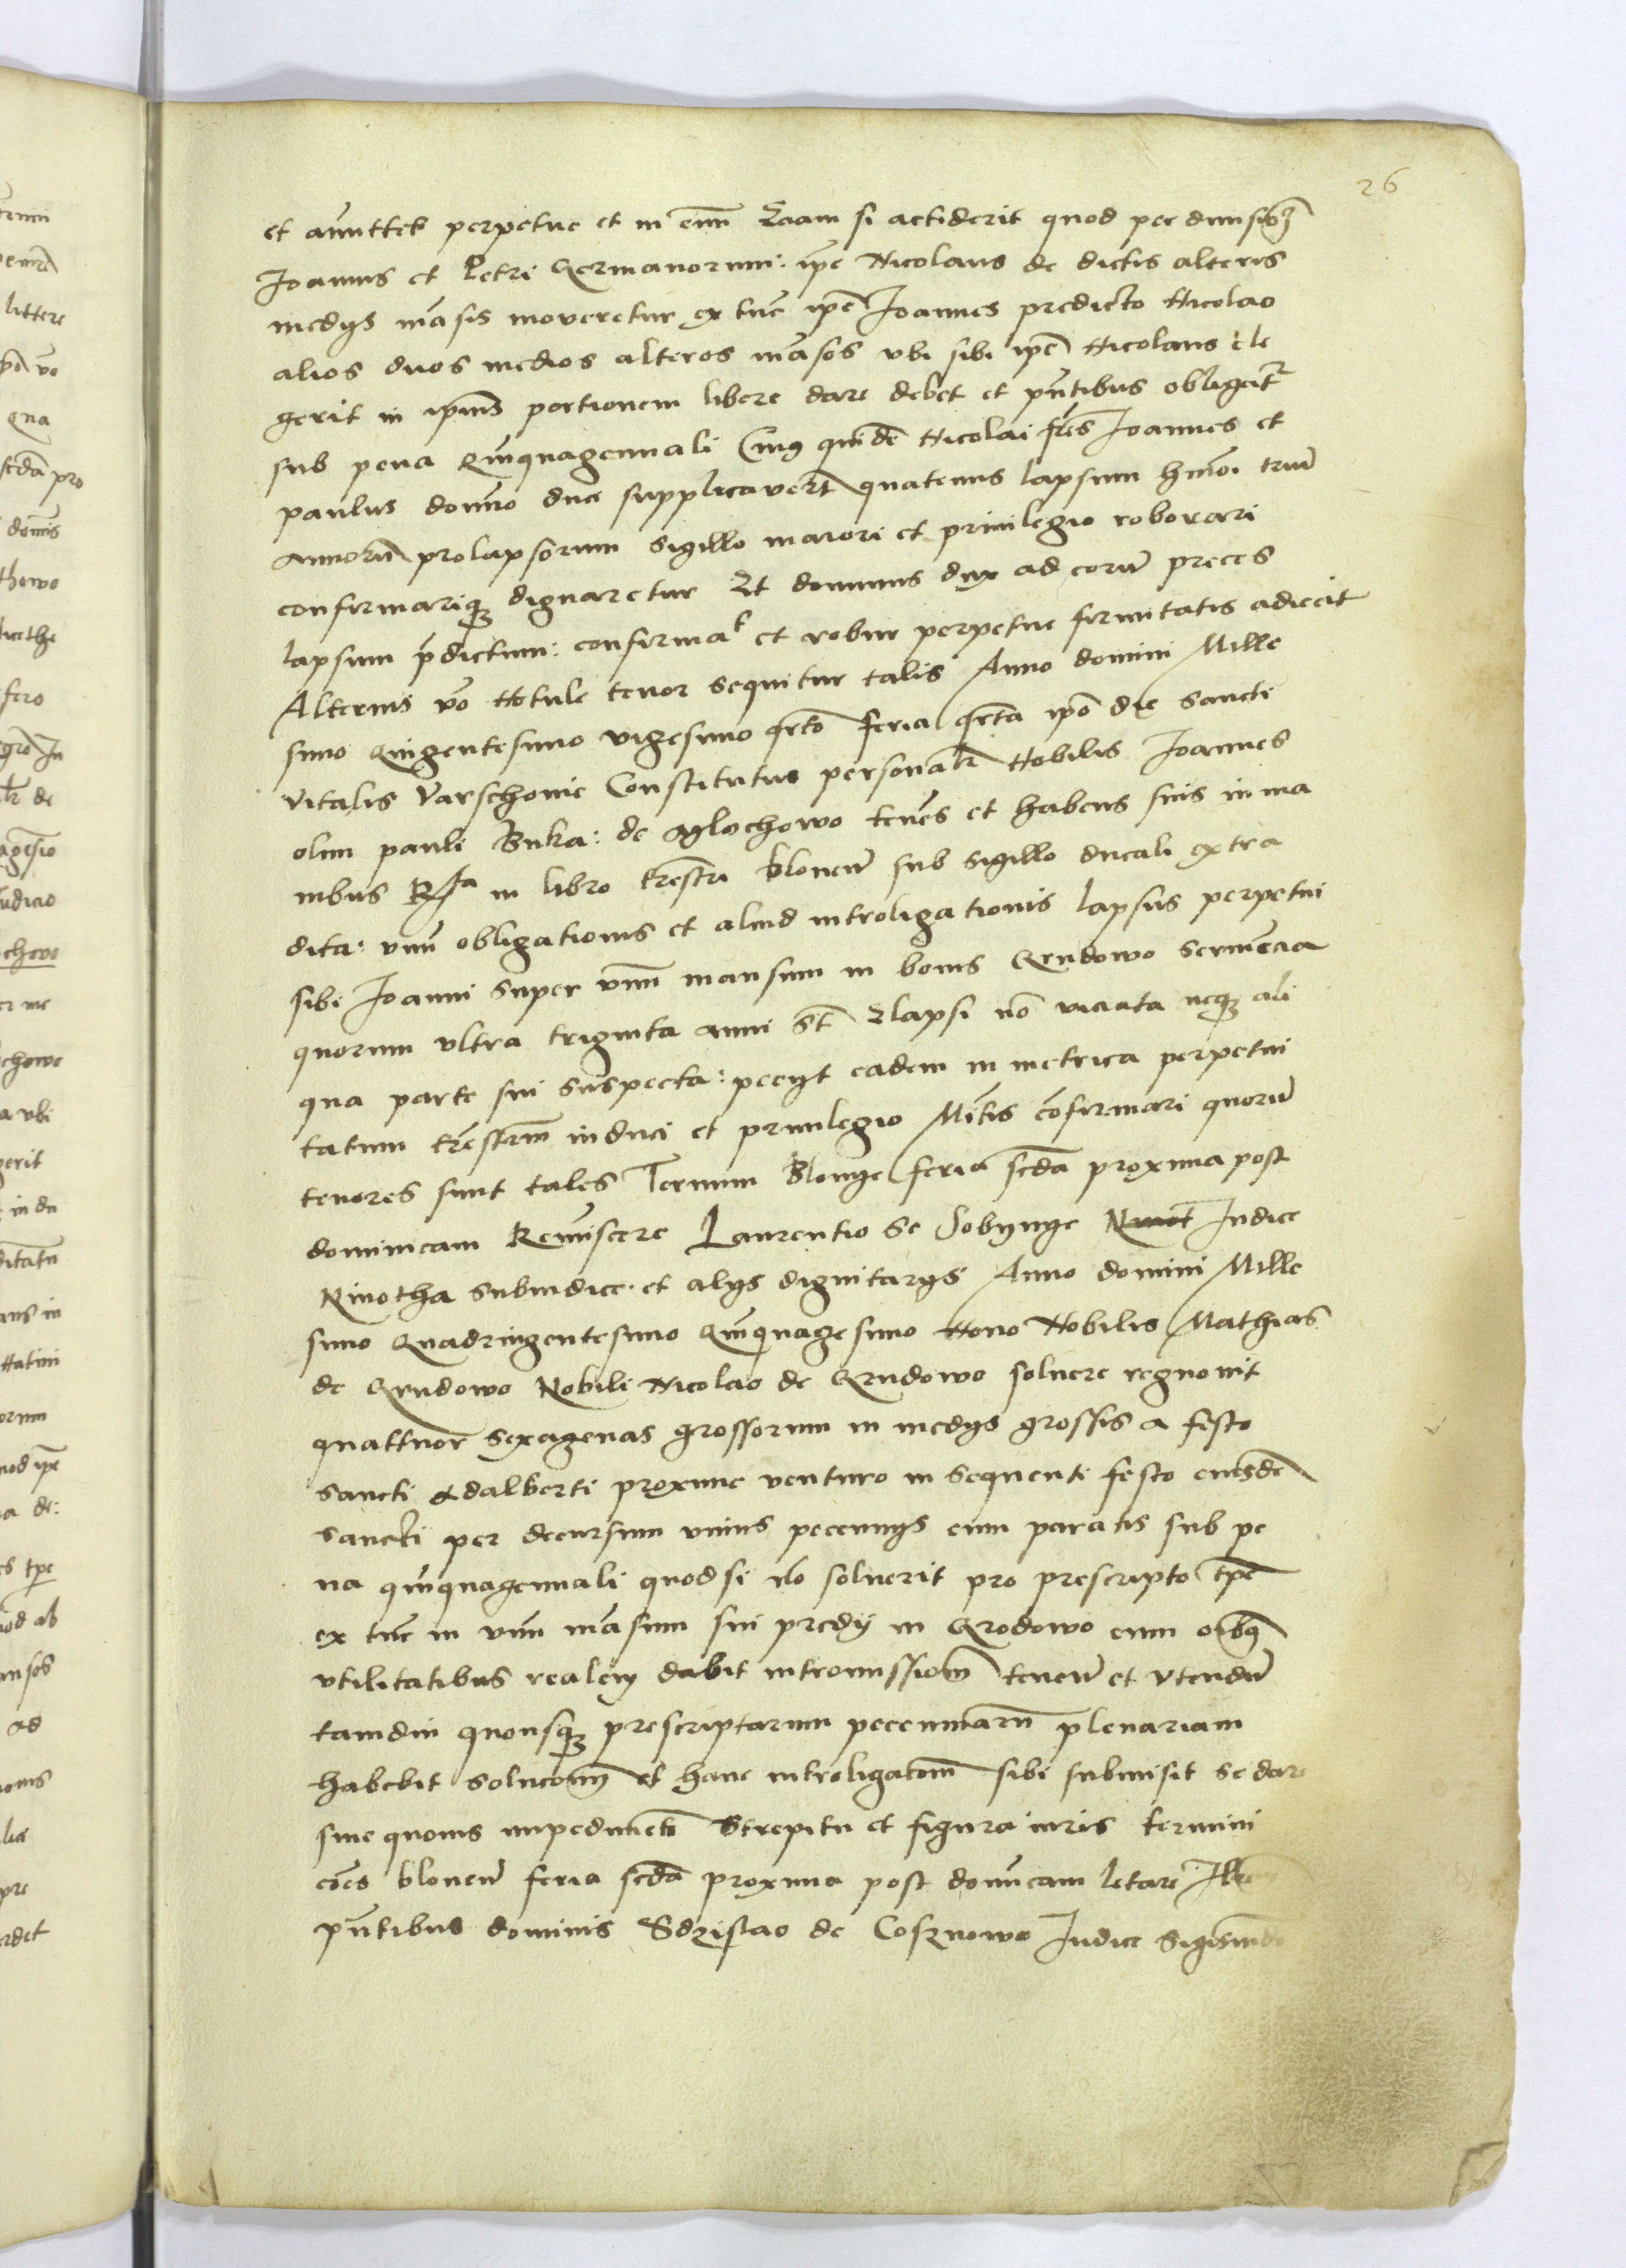 26
et amittet perpetue et in eum Eciam si acciderit quod per divisiōʒ
Joannis et Petri Germanorum: ipe Nicolaus de dictis alteris
medijs māsis moveretur ex tūc ipē Joannes predicto Nicolao
alios duos medios alteros māsos vbi sibi ipē Nicolaus ele
gerit in ipius portionem libere dare debet et pn̄tibus obligat̄
sub pena Quīquagennali Cuius quidē Nicolai fres̄ Joannes et
paulus domino duce supplicaverūt quatenus lapsum hmōi triū
annorū prolapsorum sigillo maiori et privilegio roborari
confirmariqʒ dignaretur Et dominus dux ad eorū preces
lapsum p̄dictum: confirmat et robur perpetue firmitatis adiecit
Alterius vō Notule tenor sequitur talis Anno domini Mille
simo Quingentesimo vigesimo qrto feria qrta ipō die sancti
vitalis Varschovie Constitutus personatr̄ Nobilis Joannes
olim pauli Buka: de Mlochowo tenēs et habens suis in ma
nibus Rta in libro trestri blonen̄ sub sigillo ducali extra
dita: vnū obligationis et aliud introligationis lapsus perpetui
sibi Joanni super vnū mansum in bonis Grudowo
quorum vltra triginta anni st̄ Elapsi nō viciata neqʒ ali
qua parte sui suspecta: pecijt eadem in metrica perpetui
tatum trestrem induci et privilegio Mitis cōfirmari quorū
tenores sunt tales Termini Blonye feria scdā proxima post
dominicam Reminiscere Laurentio de Sobijnye Judice
Ninotha Subiudice et alijs dignitarijs Anno domini Mille
simo Quadringentesimo Quīquagesimo Nono Nobilis Mathias
de Grudowo Nobili Nicolao de Grudowo solvere regnovit
quattuor sexagenas grossorum in medijs grossis a festo
sancti Adalberti proxime venturo in sequenti festo eiusdē
sancti per decursum vnius pecunijs cum paratis sub pe
na quīquagennali quod si nō solverit pro prescripto tpē
ex tūc in vnū māsum sui predij in Grodowo cum oibꝰ
vtilitatibus realem dabit intromissionē tenen̄ et vtendū
tamdiu quousqʒ prescriptarum pecuniarū plenariam
habebit solucionē et hanc introligatōnē sibi submisit se dare
sine quovis impedimēto strepitu et figura iuris termini
cōes blonen̄ feria scdā proxima post domīcam letare
pn̄tibus dominis Sdzislao de Cosznowo Judice Sigismūdo